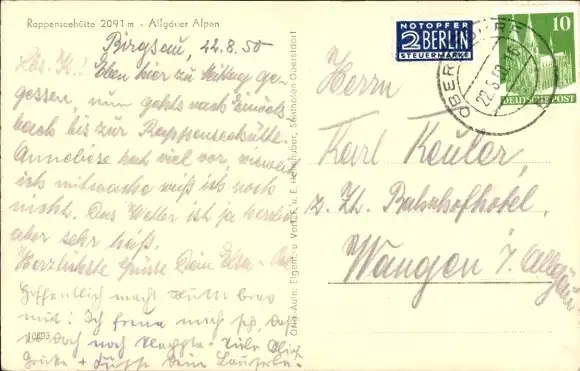 Rappenseehütte 2091 m - Allgäuer Alpen
Birgsau, 22.8.50
Lbs. K.! Eben hier zu Mittag ge-
gessen, nun gehts nach Einöds-
bach bis zur Rappenseehütte.
Anneliese hat viel vor, wieweit
ich mitmache weiß ich noch
nicht. Das Wetter ist ja herrlich
aber sehr heiß.
Herzlichste Grüße Dein
Hoffentlich macht brav
mit! Ich freue mich sehr, daß
es doch noch klappte. Viele liebe
Grüße + Dein
10895
Orig. Aufn. Eigent. u. Verlag u. E. Sonthofen-Oberstdorf
NOTOPFER
2 BERLIN
STEUERMARKE
OBERSTDORF
22.8.50-16
10
DEUTSCHE POST
Herrn
Karl Keuler,
z. Zt. Bahnhofhotel,
Wangen i. Allgäu